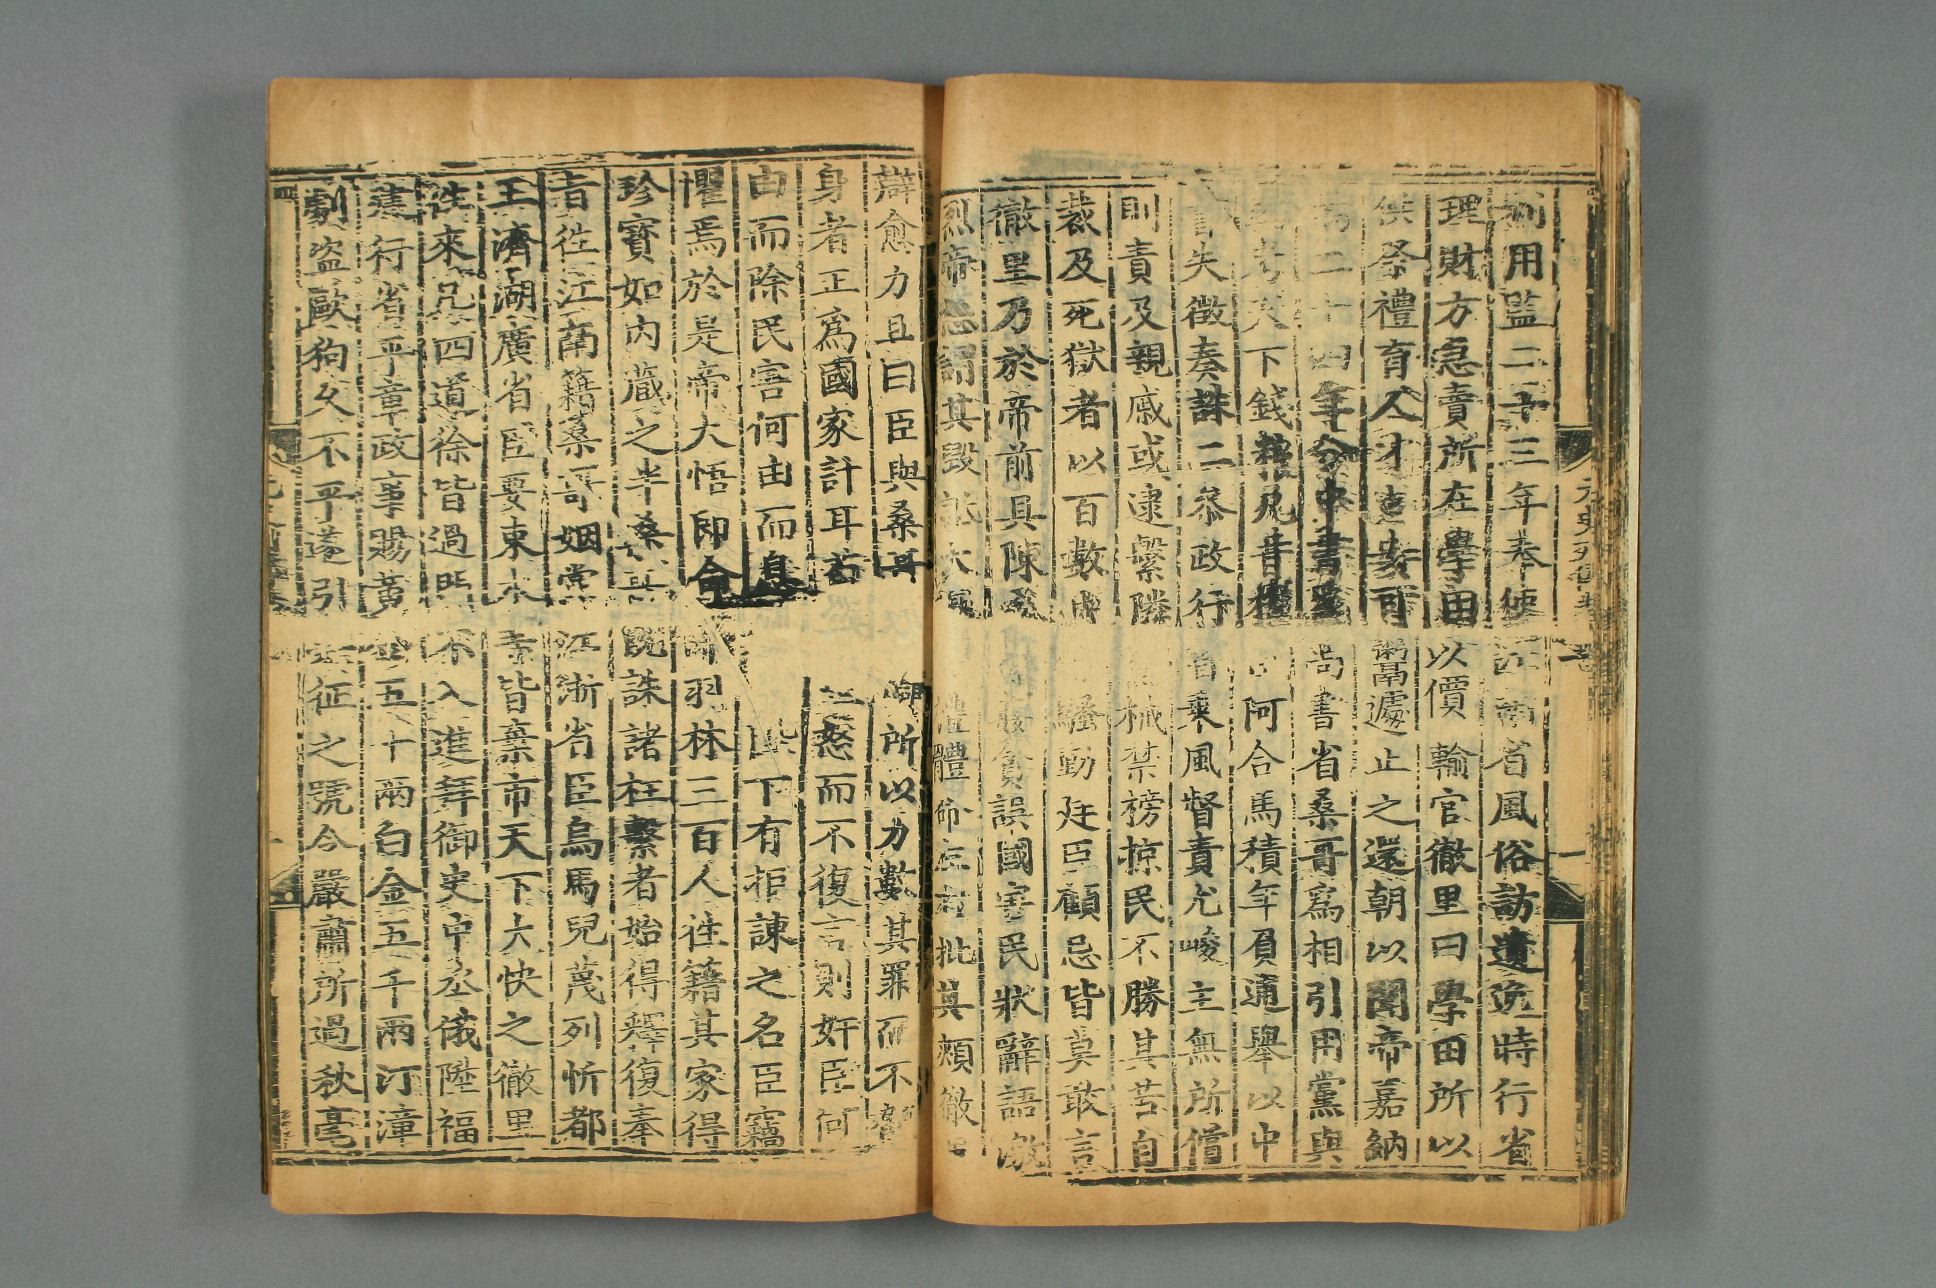 利用監二十三年奉使江南省風俗訪遺逸時行省
理財方急賣所在學田以價輸官徹里曰學田所以
供祭禮育人才安可鬻遽止之還朝以聞帝嘉納
二十四年分中書為尚書省桑哥為相引用黨與
考天下錢糧凡昔權阿合馬積年負逋舉以中
書失徵奏誅二參政行省乘風督責尤峻主無所償
則責及親戚或逮繫鄰械禁榜掠民不勝其苦自
裁及死獄者以百數騷動廷臣顧忌皆莫敢言
徹里乃於帝前具陳貪誤國害民狀辭語激
烈帝怒謂其毀詆大禮體命左右批其頰徹里
辯愈力且曰臣與桑哥所以力數其罪而不
身者正為國家計耳若怒而不復言則奸臣何
由而除民害何由而息陛下有拒諫之名臣竊
懼焉於是帝大悟即命帥羽林三百人往籍其家得
珍寶如內藏之半桑哥既誅諸枉繫者始得釋復奉
旨往江南籍桑哥姻黨江浙省臣烏馬兒蔑列忻都
王濟湖廣省臣要束木等皆棄市天下大快之徹里
往來凡四道徐皆過門不入進拜御史中丞俄陞福
建行省平章政事賜黃金五十兩白金五千兩汀漳
劇盜歐狗久不平遂引兵征之號令嚴肅所過秋毫
元史列傳